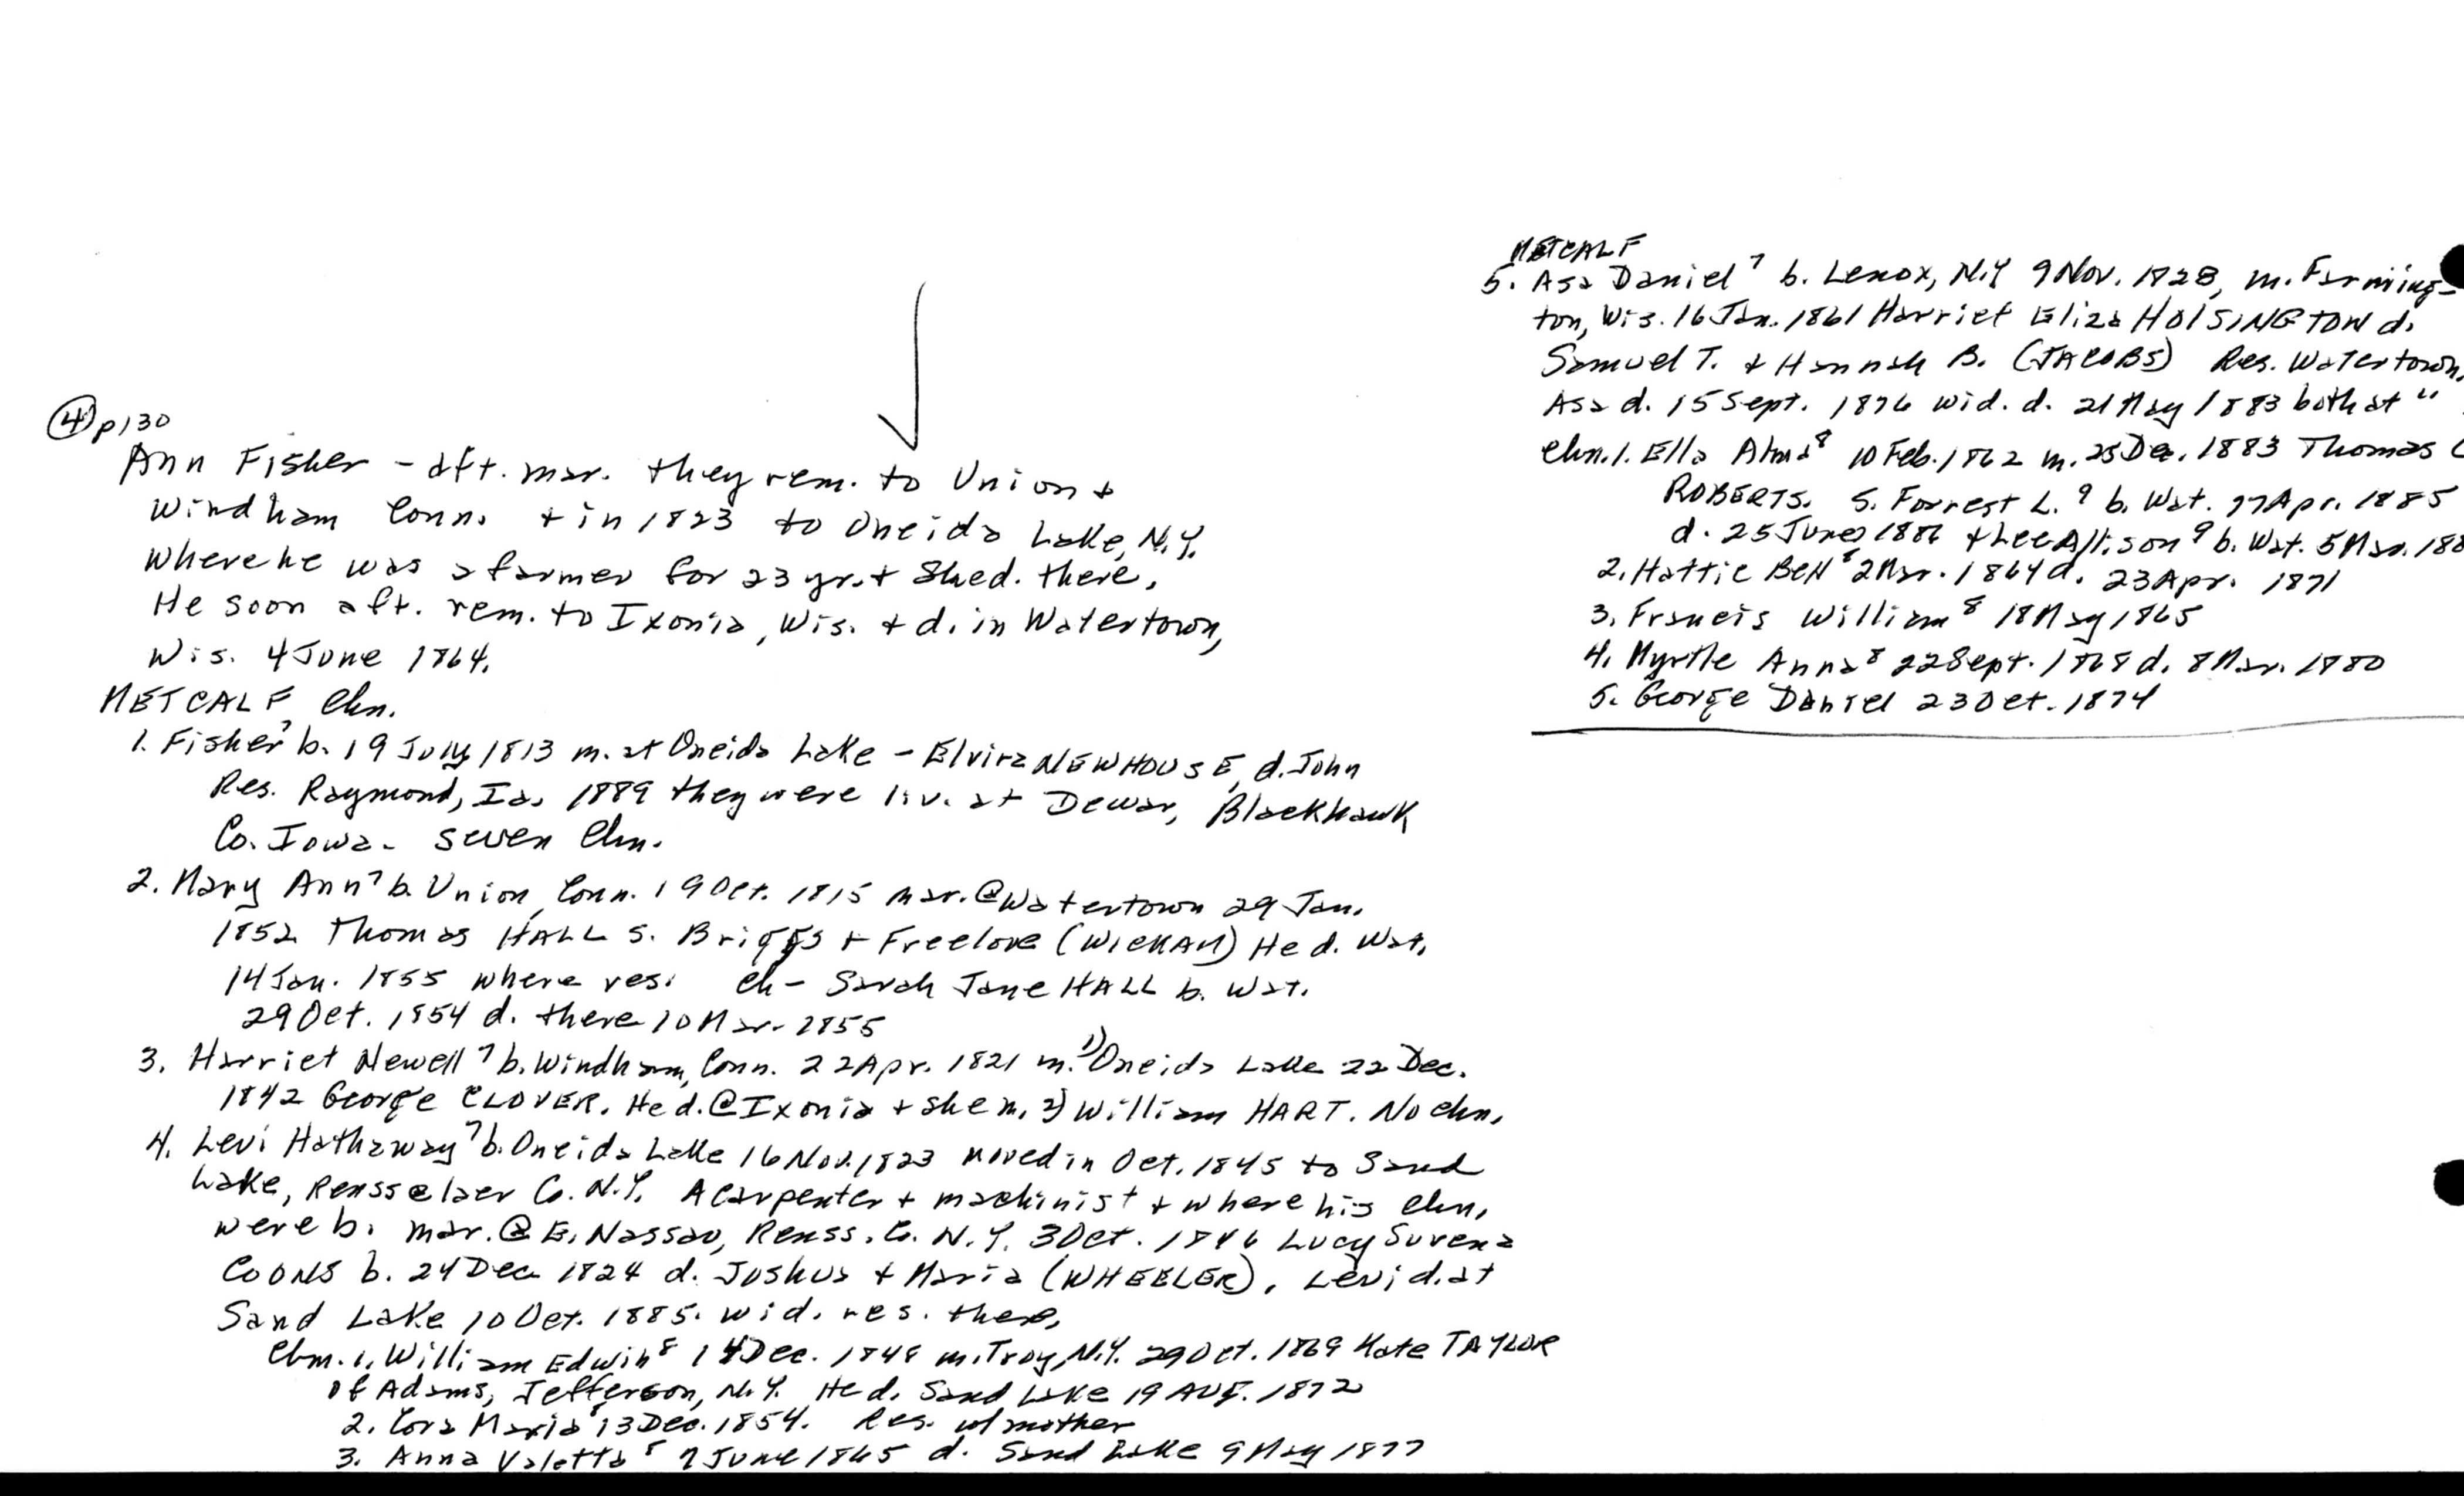 ④ p130
Ann Fisher - aft. mar. they rem. to Union +
Windham Conn. + in 1823 to Oneida Lake, N.Y.
Where he was a farmer for 23 yr. + She d. there.
He soon aft. rem. to Ixonia, Wis. + d. in Watertown,
Wis. 4 June 1864.
METCALF Chn.
1. Fisher⁷ b. 19 July 1813 m. at Oneida Lake - Elvira NEWHOUSE, d. John
Res. Raymond, Ia. 1889 they were liv. at Dewar, Blackhawk
Co. Iowa - seven Chn.
2. Mary Ann⁷ b. Union, Conn. 19 Oct. 1815 mar. @ Watertown 29 Jan.
1852 Thomas HALL s. Briggs + Freelove (WICKAM) He d. Wat.
14 Jan. 1855 where res. Ch - Sarah Jane HALL b. Wat.
29 Oct. 1854 d. there 10 Mar. 1855
3. Harriet Newell⁷ b. Windham, Conn. 22 Apr. 1821 m. 1) Oneida Lake 22 Dec.
1842 George CLOVER. He d. @ Ixonia + she m. 2) William HART. No chn.
4. Levi Hathaway⁷ b. Oneida Lake 16 Nov. 1823 moved in Oct. 1845 to Sand
Lake, Rensselaer Co. N.Y. A carpenter + machinist + where his chn.
were b. mar. @ E. Nassau, Renss. Co. N.Y. 3 Oct. 1846 Lucy Surena
COONS b. 24 Dec 1824 d. Joshua + Maria (WHEELER). Levi d. at
Sand Lake 10 Oct. 1885. wid. res. there.
Chn. 1. William Edwin⁸ 14 Dec. 1848 m. Troy, N.Y. 29 Oct. 1869 Kate TAYLOR
of Adams, Jefferson, N.Y. He d. Sand Lake 19 AUG. 1872
2. Cora Maria⁸ 13 Dec. 1854. Res. w/ mother
3. Anna Valetta⁸ 7 June 1865 d. Sand Lake 9 May 1877
METCALF
5. Asa Daniel⁷ b. Lenox, N.Y 9 Nov. 1828, m. Farming-
ton, Wis. 16 Jan. 1861 Harriet Eliza HOISINGTON d.
Samuel T. + Hannah B. (JACOBS) Res. Watertown,
Asa d. 15 Sept. 1876 wid. d. 21 May 1883 both at "
Chn. 1. Ella Alma⁸ 10 Feb. 1862 m. 25 Dec. 1883 Thomas C
ROBERTS. S. Forrest L.⁹ b. Wat. 27 Apr. 1885
d. 25 June 1886 + Lee Allison⁹ b. Wat. 5 Mar. 188
2. Hattie Bell⁸ 2 Mar. 1864 d. 23 Apr. 1871
3. Francis William⁸ 18 May 1865
4. Myrtle Anna⁸ 22 Sept. 1868 d. 8 Mar. 1880
5. George Daniel 23 Oct. 1874